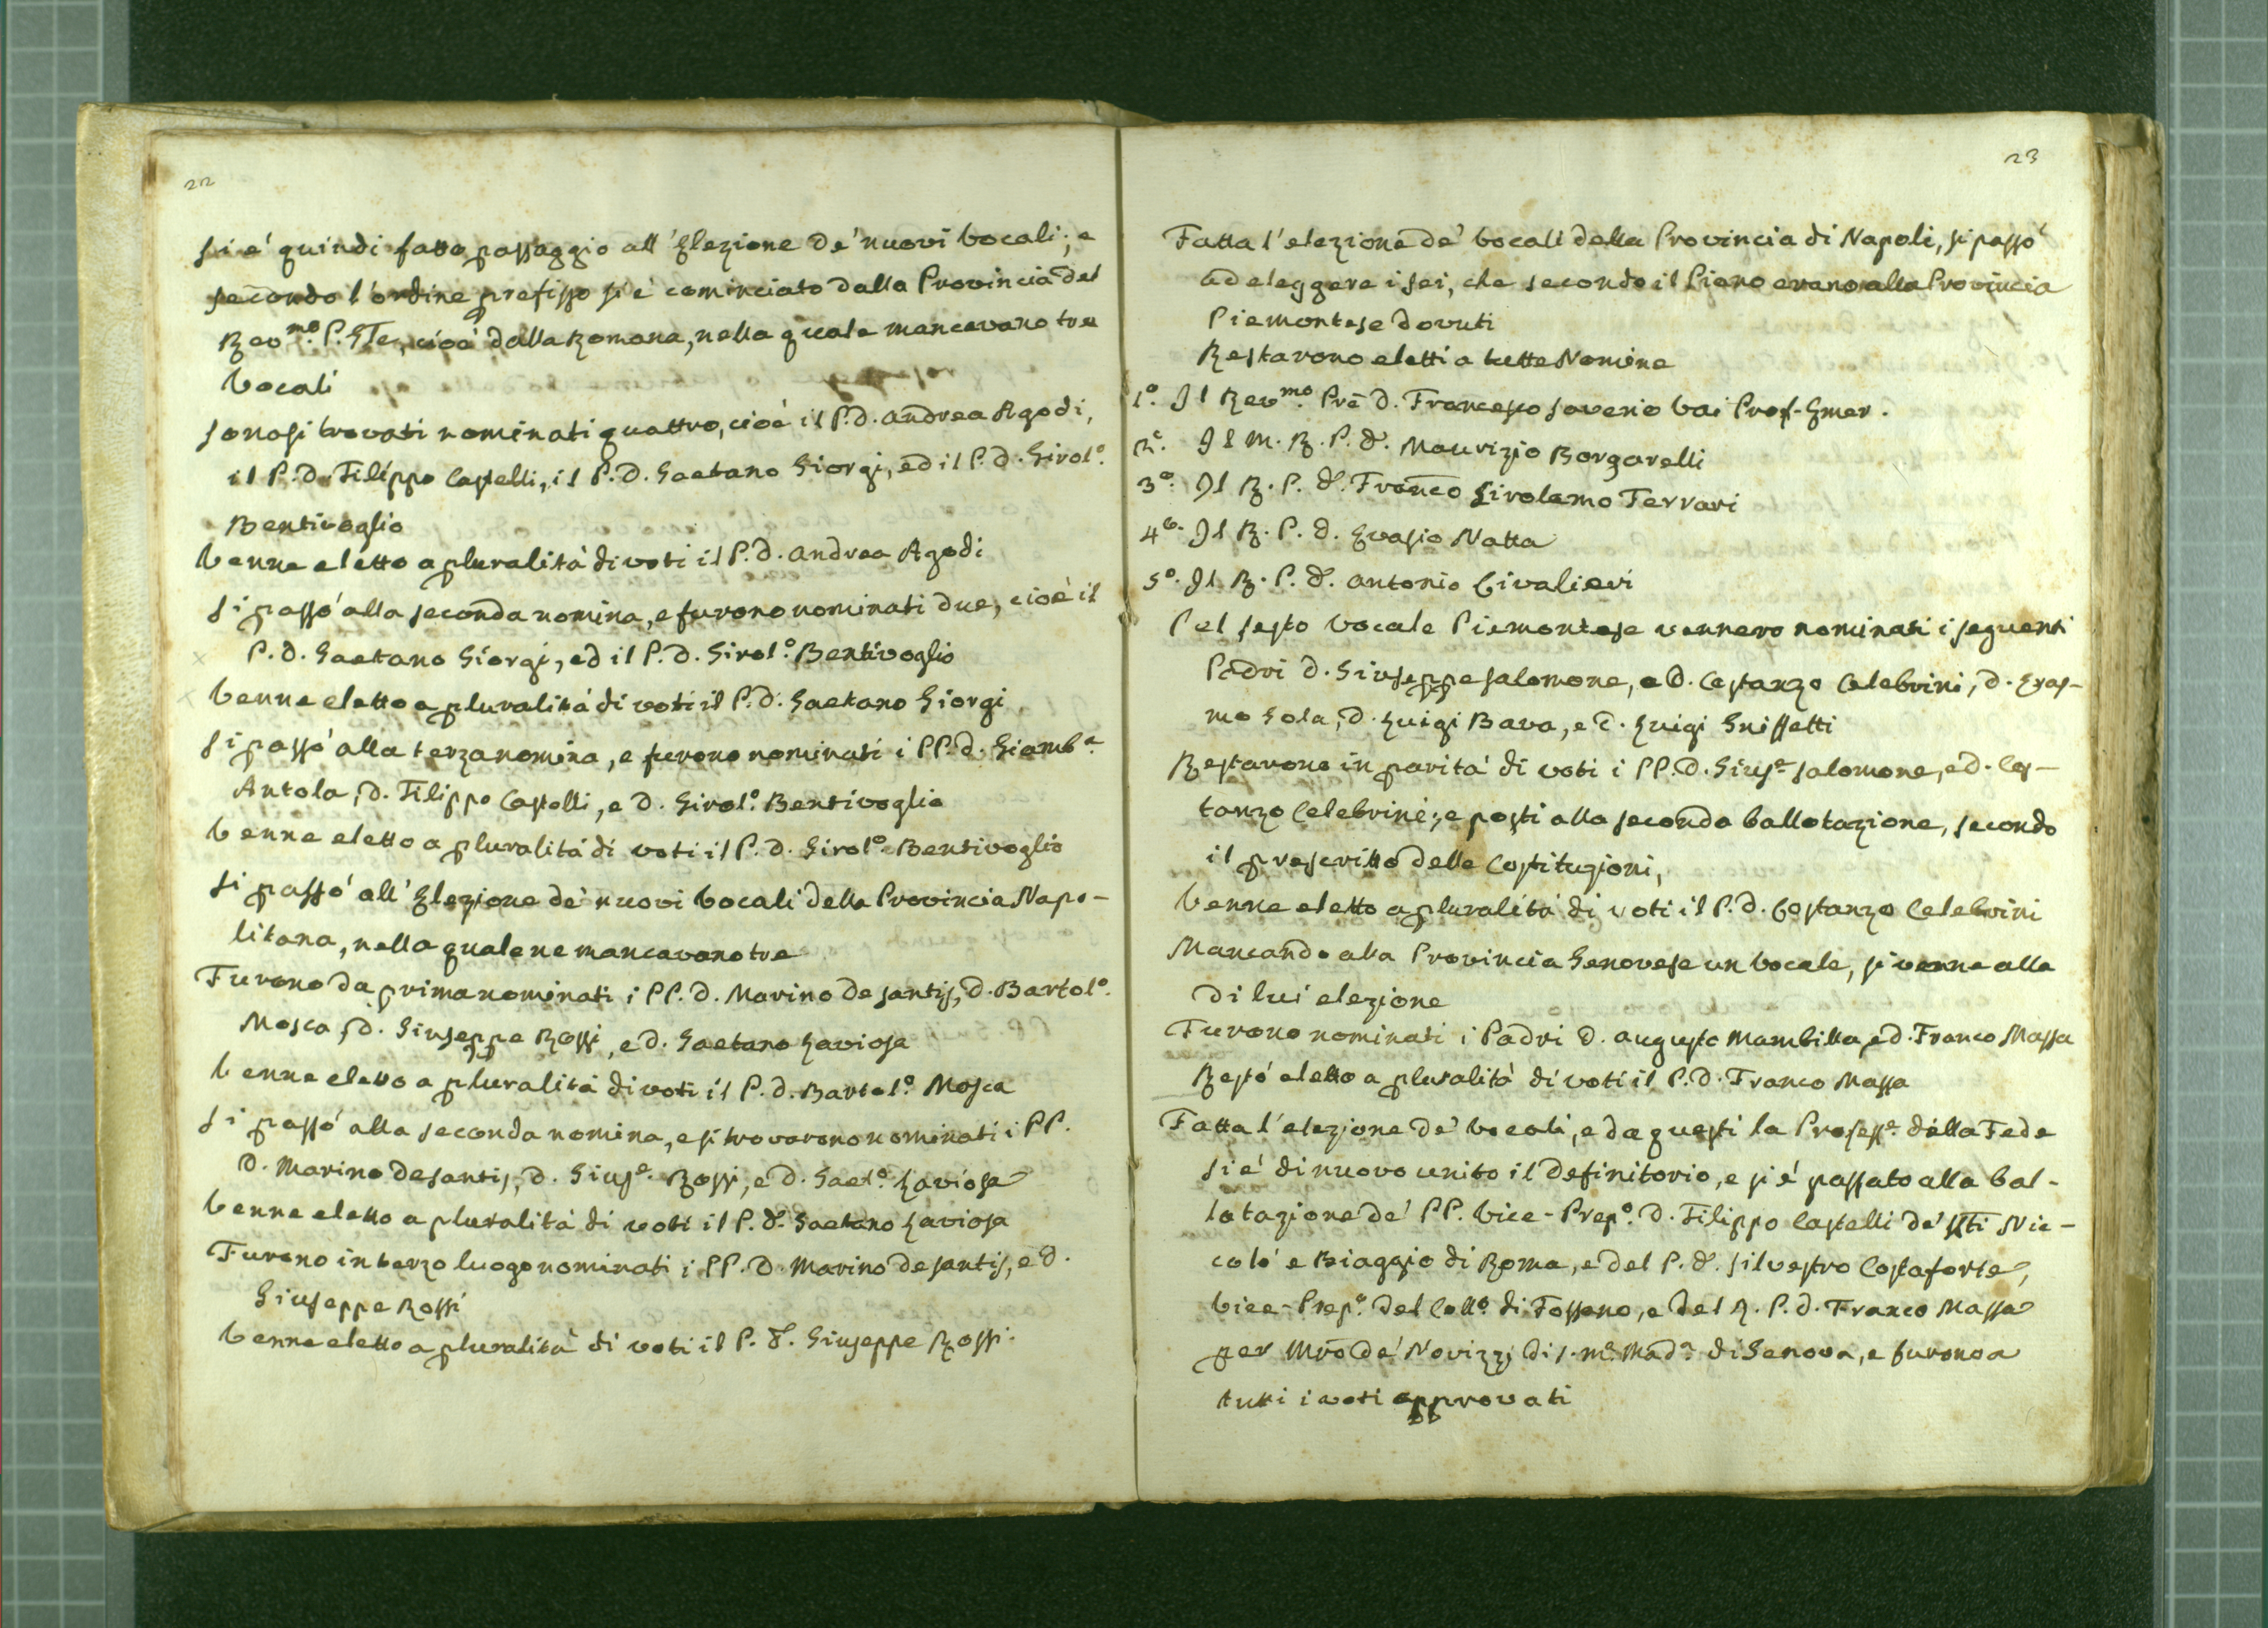 22
Si e' quindi fatto passaggio all'Elezione de' nuovi Vocali; e
secondo l'ordine prefisso si è cominciato dalla Provincia del
Rev.mo P. Gle, cioè dalla Romana, nella quale mancavano tre
Vocali
Sonosi trovati nominati quattro, cioè il P. D. Andrea Agodi,
il P. D. Filippo Castelli, il P. D. Gaetano Giorgi, ed il P. D. Girol.o
Bentivoglio
Venne eletto a pluralità di voti il P. D. Andrea Agodi
Si passò alla seconda nomina, e furono nominati due, cioè il
P. D. Gaetano Giorgi, ed il P. D. Girol.o Bentivoglio
Venne eletto a pluralità di voti il P. D. Gaetano Giorgi
Si passò alla terza nomina, e furono nominati i PP. D. Giamb.a
Antola, D. Filippo Castelli, e D. Girol.o Bentivoglio
Venne eletto a pluralità di voti il P. D. Girol.o Bentivoglio
Si passò all'Elezione de' nuovi Vocali della Provincia Napo-
litana, nella quale ne mancavano tre
Furono da prima nominati i PP. D. Marino de Santis, D. Bartol.o
Mosca, D. Giuseppe Rossi, e D. Gaetano Laviosa
Venne eletto a pluralità di voti il P. D. Bartol.o Mosca
Si passò alla seconda nomina, e si trovarono nominati i PP.
D. Marino de Santis, D. Gius.e Rossi, e D. Gaet.o Laviosa
Venne eletto a pluralità di voti il P. D. Gaetano Laviosa
Furono in terzo luogo nominati i PP. D. Marino de Santis, e D.
Giuseppe Rossi
Venne eletto a pluralità di voti il P. D. Giuseppe Rossi.
23
Fatta l'elezione de' Vocali della Provincia di Napoli, si passò
ad eleggere i sei, che secondo il Piano erano alla Provincia
Piemontese dovuti
Restarono eletti a tutte Nomine
1.o Il Rev.mo Prē D. Francesco Saverio Vai Prof. Emer.
2.o Il M. R. P. D. Maurizio Borgarelli
3.o Il R. P. D. Franco Girolamo Ferrari
4.o Il R. P. D. Evasio Natta
5.o Il R. P. D. Antonio Civalieri
Pel sesto Vocale Piemontese vennero nominati i seguenti
Padri D. Giuseppe Salomone, e D. Costanzo Celebrini, D. Eras-
mo Sola, D. Luigi Bava, e D. Luigi Gniffetti
Restarono in parità di voti i PP. D. Gius.e Salomone, e D. Cos-
tanzo Celebrini; e posti alla seconda ballotazione, secondo
il prescritto delle Costituzioni,
Venne eletto a pluralità di voti il P. D. Costanzo Celebrini
Mancando alla Provincia Genovese un Vocale, si venne alla
di lui elezione
Furono nominati i Padri D. Augusto Mambilla, e D. Franco Massa
Restò eletto a pluralità di voti il P. D. Franco Massa
Fatta l'elezione de' Vocali, e da questi la Profess.e della Fede
si è di nuovo unito il Definitorio, e si è passato alla bal-
lotazione de' PP. Vice-Prep.o D. Filippo Castelli de' SSti Nic-
colò e Biaggio di Roma, e del P. D. Silvestro Costaforte,
Vice-Prep.o del Coll.o di Fossano, e del R. P. D. Franco Massa
per Mrō de' Novizzj di S. M.a Mad.a di Genova, e furono a
tutti i voti approvati